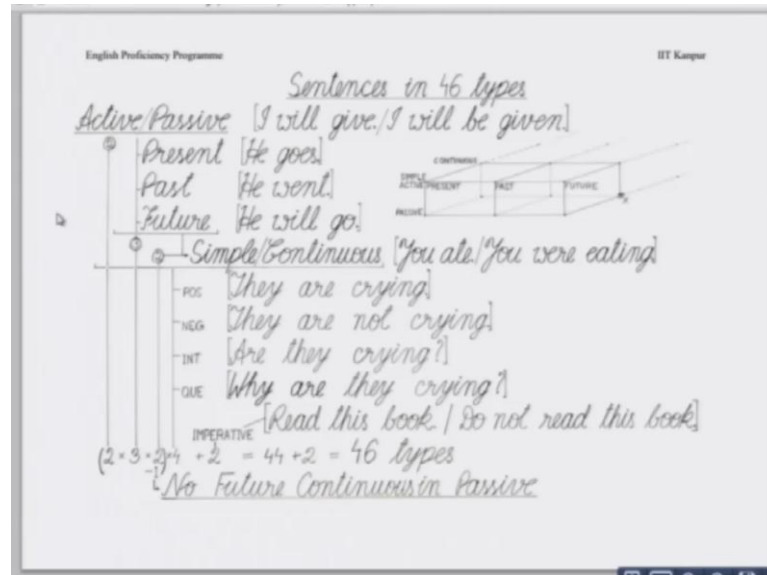 English Proficiency Programme IIT Kanpur
Sentences in 46 types
Active/Passive [I will give./I will be given.]
② Present [He goes.]
Past [He went.]
Future [He will go.]
CONTINUOUS
SIMPLE
ACTIVE PRESENT PAST FUTURE
PASSIVE
X
③ ② Simple/Continuous [You ate./You were eating.]
POS [They are crying.]
NEG [They are not crying.]
INT [Are they crying?]
QUE [Why are they crying?]
IMPERATIVE [Read this book. / Do not read this book.]
(2 × 3 × 2)×4 + 2 = 44 + 2 = 46 types
-1
No Future Continuous in Passive